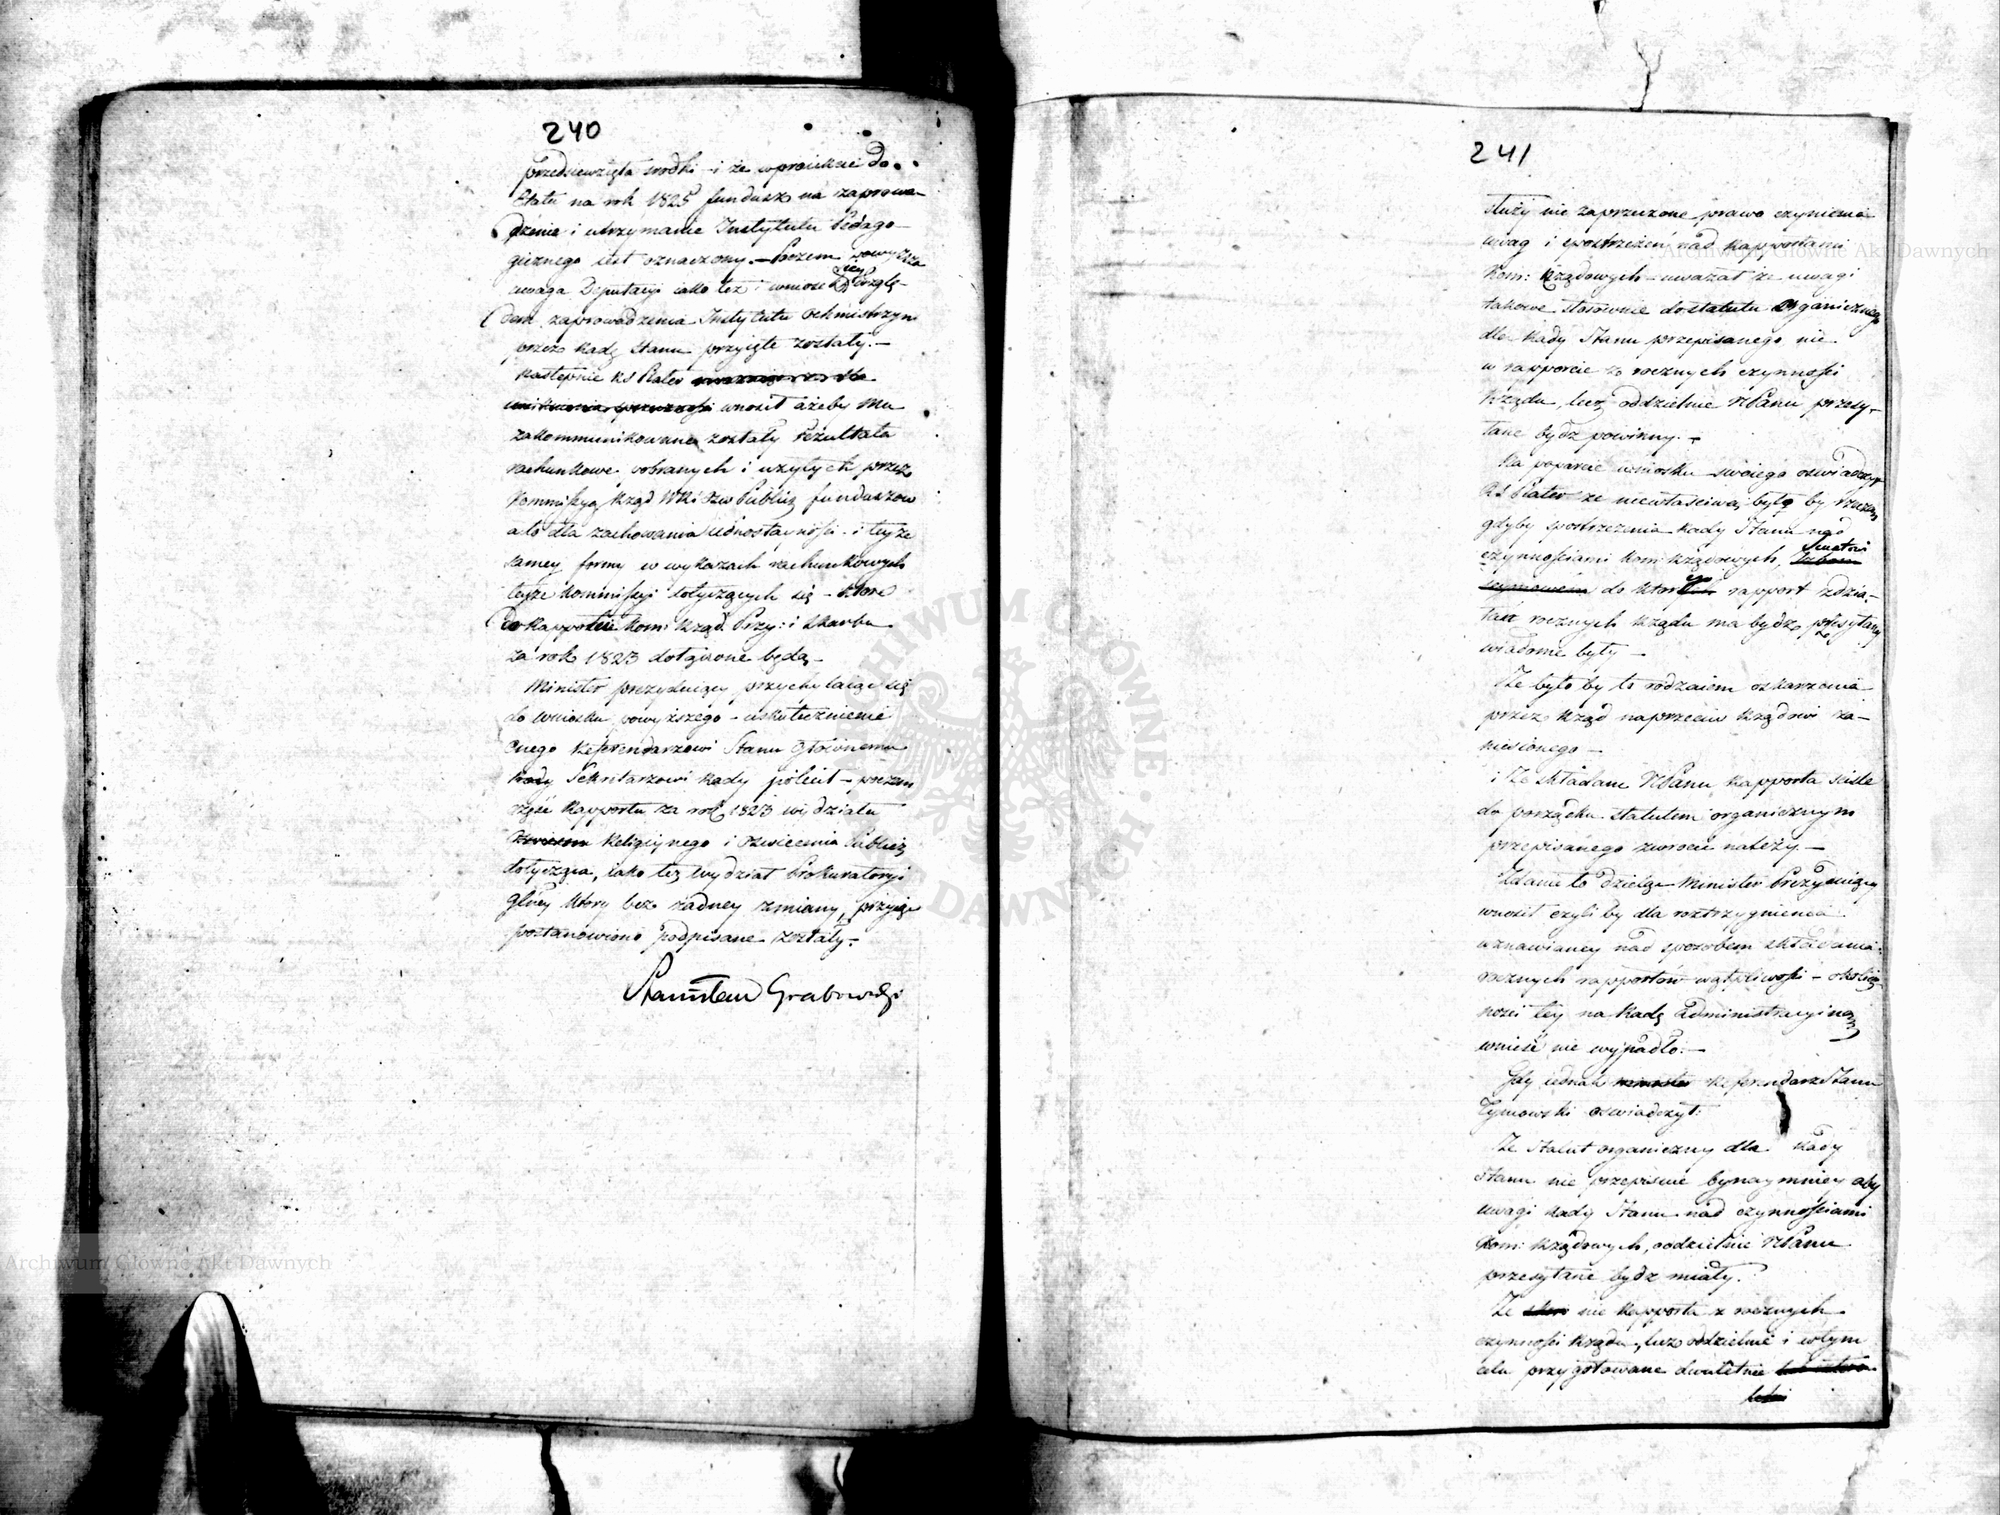 240
przedsiewzięte srodki i że w proiekcie do
Etatu na rok 1825 fundusz na zaprowa-
dzenie i utrzymanie Instytutu Pedago-
gicznego iest oznaczony. – Poczem powyższa
uwaga Deputacyi iako też i wniosek wzglę-
dem zaprowadzenia Instytutu Ochmistrzyn
przez Radę Stanu przyięte zostały. –
Następnie RS Plater
wnosił ażeby Mu
zakommunikowane zostały rezultata
rachunkowe pobranych i użytych przez
Kommissyą Rząd WR i Ośw Public funduszow
a to dla zachowania iednostayności i teyże
samey formy w wykazach rachunkowych
teyże Kommissyi tyczących się – ktore
do Rapportu Kom: Rząd. Przy: i Skarbu
za rok 1823 dołączone będą –
Minister prezyduiący przychylaiąc się
do wniosku powyższego – uskutecznienie
onego Referendarzowi Stanu Głównemu
Sekretarzowi Rady polecił – poczem
część Rapportu za rok 1823 wydziału
Religiynego i Oświecenia Public
dotycząca, iako też Wydział Prokuratoryi
głney ktory bez żadney zmiany, przyiąć
postanowiono podpisane zostały. –
Stanisław Grabowski
241
służy nie zaprzeczone prawo czynienia
uwag i spostrzeżeń nad Rapportami
Kom: Rządowych – uważał że uwagi
takowe stosownie do statutu organicznego
dla Rady Stanu przepisanego nie
w rapporcie z rocznych czynności
Rządu, lecz oddzielnie NPanu przesy-
łane bydź powinny. –
Na poparcie wniosku swoiego oświadczył
RS Plater że niewłaściwą byłoby rzeczą
gdyby spostrzeżenia Rady Stanu nad
czynnościami Kom: Rządowych, Senatowi
do ktorego rapport z dzia-
łań rocznych Rządu ma bydź przesyłany
wiadome były –
Że było by to rodzaiem oskarżenia
przez Rząd naprzeciw Rządowi za-
niesionego –
i że składane NPanu Rapporta ściśle
do porządku statutem organicznym
przepisanego zwrocić należy. –
Zdanie to dzieląc Minister Prezyduiący
wnosił czyli by dla rozstrzygnienia
wznawianey nad sposobem składania
rocznych rapportów wątpliwości – okolicz-
ności tey na Radę Administracyiną
wnieść nie wypadło. –
Gdy iednak Referendarz Stanu
Tymowski oświadczył:
Że Statut organiczny dla Rady
Stanu nie przepisuie bynaymniey aby
uwagi Rady Stanu nad czynnościami
Kom: Rządowych, oddzielnie NPanu
przesyłane bydź miały.
Że nie Rapporta z rocznych
czynności Rządu, lecz oddzielnie i w tym
celu przygotowane dwuletnie